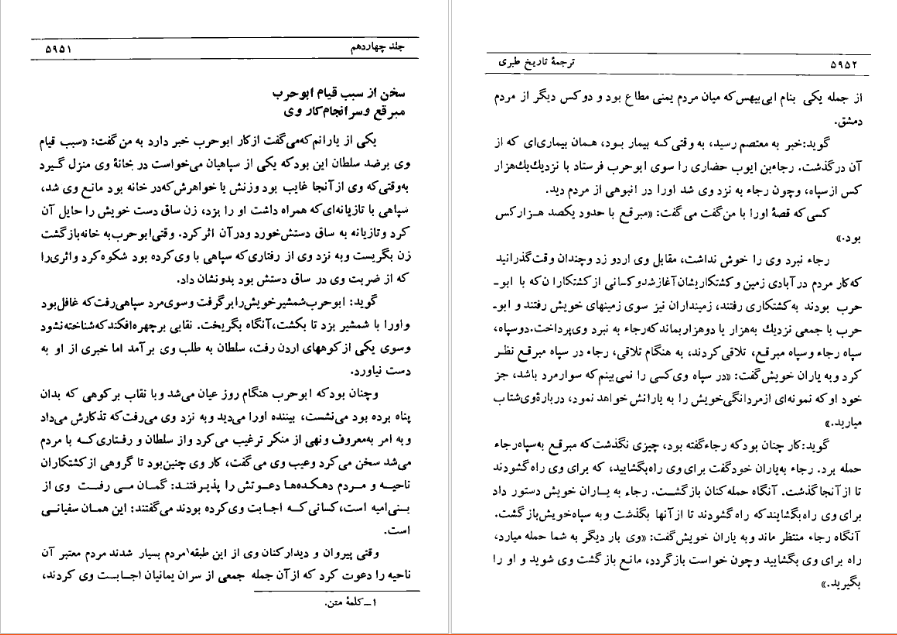 جلد چهاردهم ۵۹۵۱
سخن از سبب قیام ابوحرب
مبرقع و سرانجام کار وی
یکی از یارانم که می‌گفت از کار ابوحرب خبر دارد به من گفت: «سبب قیام
وی بر ضد سلطان این بود که یکی از سپاهیان می‌خواست در خانهٔ وی منزل گیرد
به‌وقتی که وی از آنجا غایب بود و زنش یا خواهرش که در خانه بود مانع وی شد،
سپاهی با تازیانه‌ای که همراه داشت او را بزد، زن ساق دست خویش را حایل آن
کرد و تازیانه به ساق دستش خورد و در آن اثر کرد. وقتی ابوحرب به خانه بازگشت
زن بگریست و به نزد وی از رفتاری که سپاهی با وی کرده بود شکوه کرد و اثری را
که از ضربت وی در ساق دستش بود بدو نشان داد.
گوید: ابوحرب شمشیر خویش را برگرفت و سوی مرد سپاهی رفت که غافل بود
و او را با شمشیر بزد تا بکشت، آنگاه بگریخت. نقابی بر چهره افکند که شناخته نشود
و سوی یکی از کوههای اردن رفت، سلطان به طلب وی برآمد اما خبری از او به
دست نیاورد.
و چنان بود که ابوحرب هنگام روز عیان می‌شد و با نقاب بر کوهی که بدان
پناه برده بود می‌نشست، بیننده او را می‌دید و به نزد وی می‌رفت که تذکارش می‌داد
و به امر به‌معروف و نهی از منکر ترغیب می‌کرد و از سلطان و رفتاری کـه با مردم
می‌شد سخن می‌کرد و عیب وی می‌گفت، کار وی چنین بود تا گروهی از کشتکاران
ناحیـه و مـردم دهکده‌ها دعوتش را پذیرفتند: گمان مـی رفـت وی از
بنـی‌امیه است، کسانی کـه اجابت وی کرده بودند می‌گفتند: این همان سفیانـی
است.
وقتی پیروان و دیدارکنان وی از این طبقه۱ مردم بسیار شدند مردم معتبر آن
ناحیه را دعوت کرد که از آن جمله جمعی از سران یمانیان اجابت وی کردند،
۱ــ کلمهٔ متن.
ترجمهٔ تاریخ طبری ۵۹۵۲
از جمله یکی بنام ابی‌بیهس که میان مردم یمنی مطاع بود و دو کس دیگر از مردم
دمشق.
گوید: خبر به معتصم رسید، به وقتی کـه بیمار بـود، همان بیماری‌ای که از
آن درگذشت. رجاءبن ایوب حضاری را سوی ابوحرب فرستاد با نزدیك یك هزار
کس از سپاه، و چون رجاء به نزد وی شد او را در انبوهی از مردم دید.
کسی که قصهٔ او را با من گفت می‌گفت: «مبرقع با حدود یکصد هزار کس
بود.»
رجاء نبرد وی را خوش نداشت، مقابل وی اردو زد و چندان وقت گذرانید
که کار مردم در آبادی زمین و کشتکاریشان آغاز شد و کسانی از کشتکاران که با ابوـ
حرب بودند به کشتکاری رفتند، زمینداران نیز سوی زمینهای خویش رفتند و ابوـ
حرب با جمعی نزدیك به هزار یا دو هزار بماند که رجاء به نبرد وی پرداخت، دو سپاه،
سپاه رجاء و سپاه مبرقـع، تلاقی کردند، به هنگام تلاقی، رجاء در سپاه مبرقع نظـر
کرد و به یاران خویش گفت: «در سپاه وی کسی را نمی‌بینم که سوارمرد باشد، جز
خود او که نمونه‌ای از مردانگی خویش را به یارانش خواهد نمود، دربارهٔ وی شتاب
میارید.»
گوید: کار چنان بود که رجاء گفته بود، چیزی نگذشت که مبرقع به سپاه رجاء
حمله برد. رجاء به یاران خود گفت برای وی راه بگشایید، که برای وی راه گشودند
تا از آنجا گذشت. آنگاه حمله کنان بازگشـت. رجاء به یـاران خویش دستور داد
برای وی راه بگشایند که راه گشودند تا از آنها بگذشت و به سپاه خویش بازگشت.
آنگاه رجاء منتظر ماند و به یاران خویش گفت: «وی بار دیگر به شما حمله میارد،
راه برای وی بگشایید و چون خواست بازگردد، مانـع بازگشت وی شوید و او را
بگیرید.»